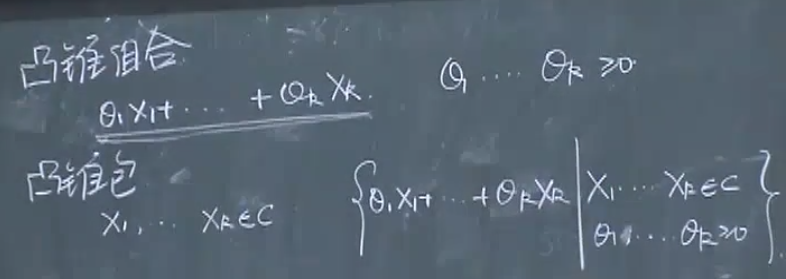 凸锥组合
θ₁X₁+ ⋯ + θₖXₖ. θ₁ ⋯ θₖ ≥0
凸锥包
X₁, ⋯ Xₖ∈C {θ₁X₁+ ⋯ + θₖXₖ | X₁ ⋯ Xₖ∈C
θ₁, ⋯ θₖ≥0}